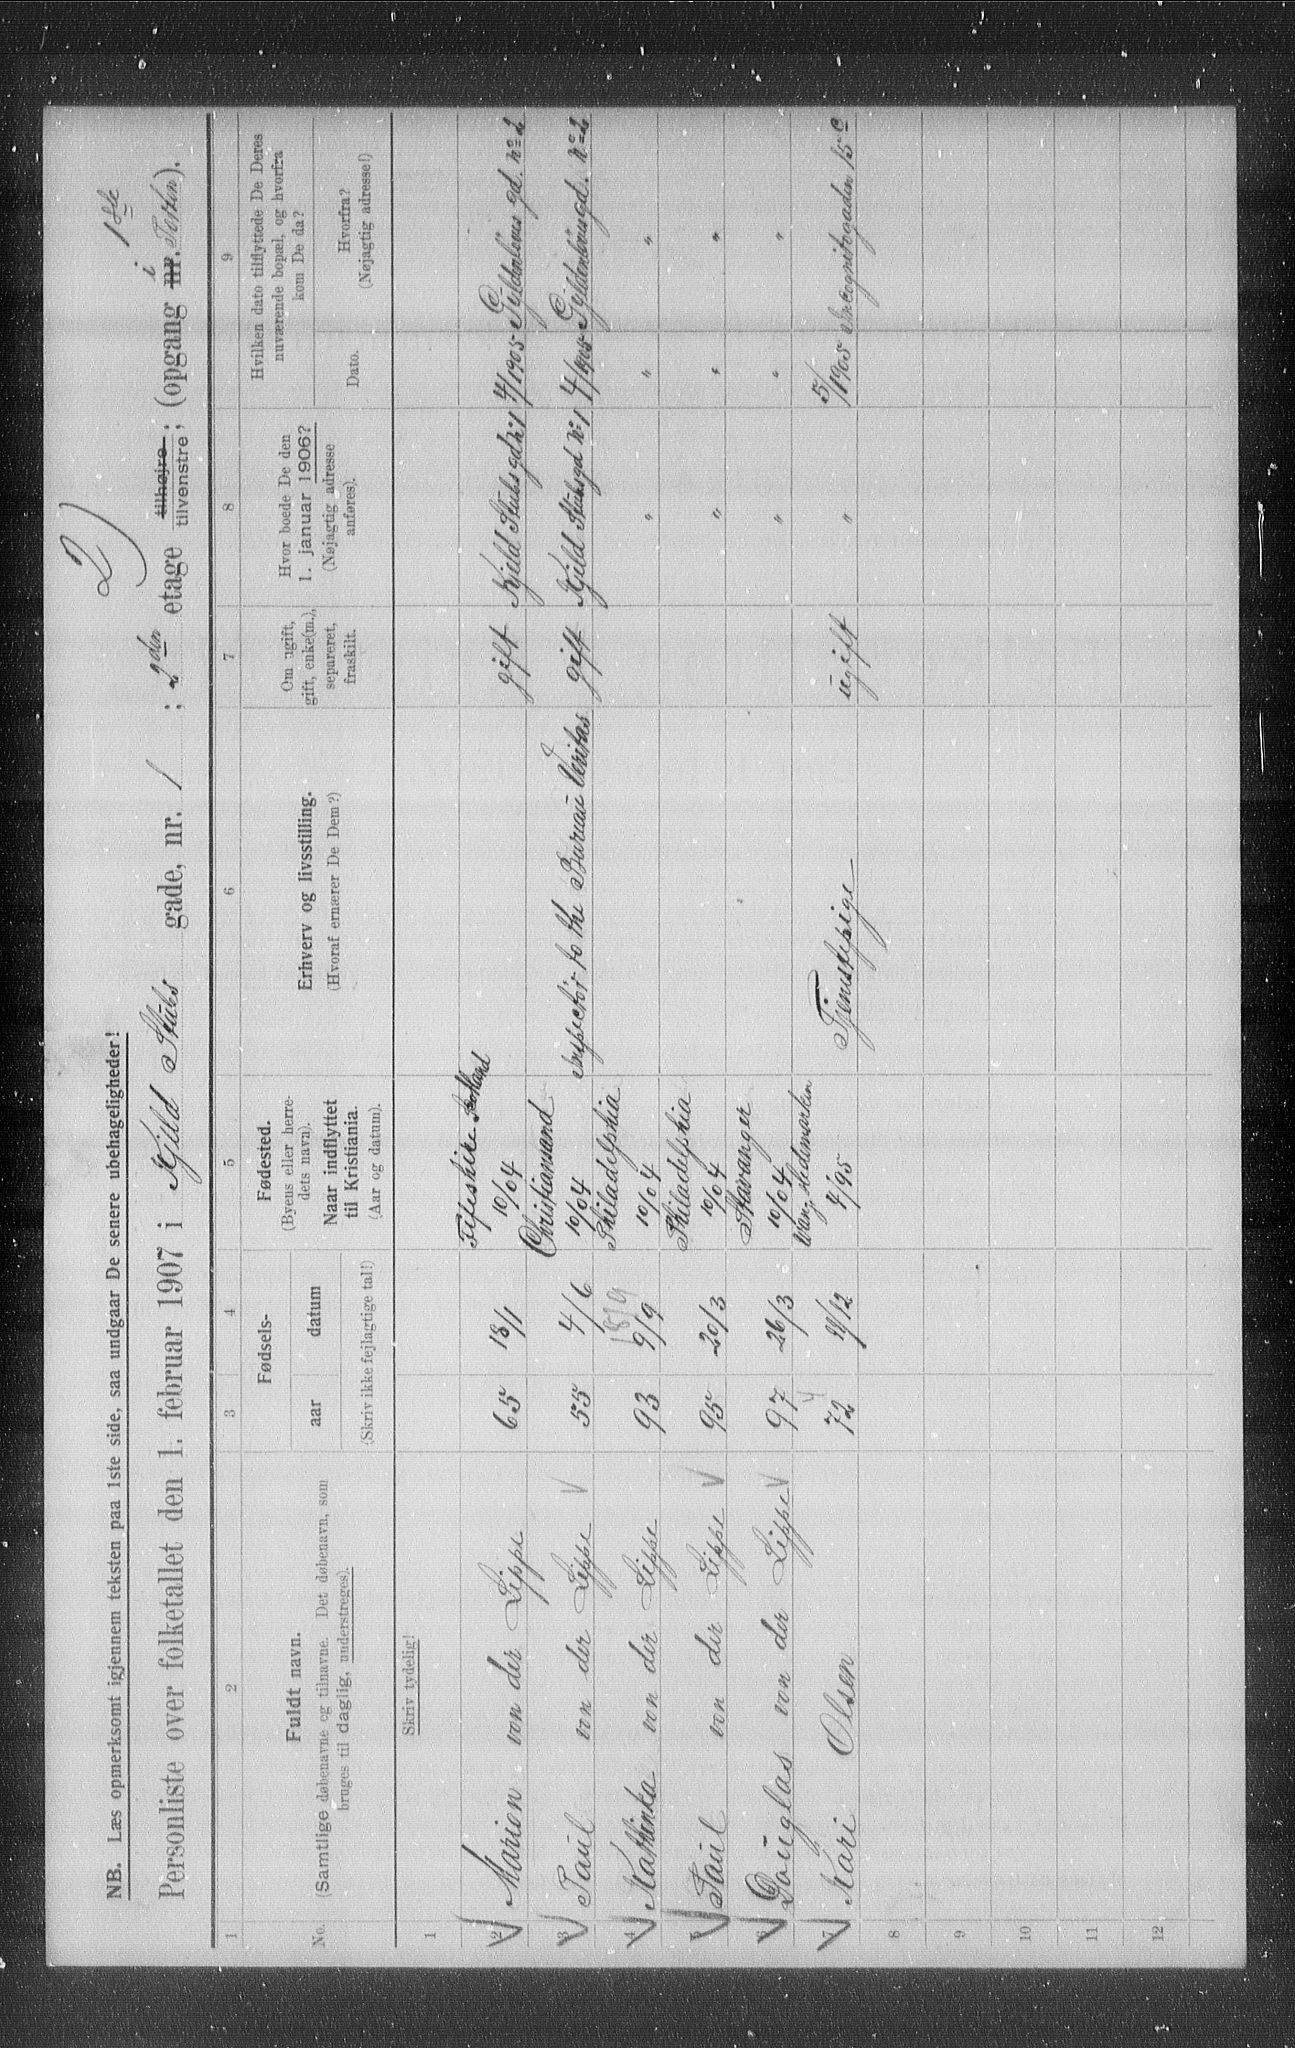 2)
NB. Læs opmerksomt igjennem teksten paa 1ste side, saa undgaar De senere ubehageligheder!
Personliste over folketallet den 1. februar 1907 i Kjeld Stubs gade, nr. 1; 2den etage tilhøjre; tilvenstre; (opgang nr. i 1ste
1 2 3 4 5 6 7 8 9
No.
Fuldt navn.
(Samtlige døbenavne og tilnavne. Det døbenavn, som
bruges til daglig, understreges).
Fødsels-
aar datum
(Skriv ikke fejlagtige tal!)
Fødested.
(Byens eller herre-
dets navn).
Naar indflyttet
til Kristiania.
(Aar og datum).
Erhverv og livsstilling.
(Hvoraf ernærer De Dem?)
Om ugift,
gift, enke(m.),
separeret,
fraskilt.
Hvor boede De den
1. januar 1906?
(Nøjagtig adresse
anføres).
Hvilken dato tilflyttede De Deres
nuværende bopæl, og hvorfra
kom De da?
Dato.
Hvorfra?
(Nøjagtig adresse!)
Skriv tydelig!
1
2 Marion von der Lippe 65 18/1 Fifeshire Scotland 10/04 gift Kjeld Stubs gd No 1 4/1905 Gyldenløves gd. No 2
3 Paul von der Lippe 55 4/6 Christiansand 10/04 Inspector to the Bureau Veritas gift Kjeld Stubs gd No 1 4/1905 Gyldenløvesgd. No 2
4 Kathinka von der Lippe 93 9/9 18/9 Philadelphia 10/04 " " "
5 Paul von der Lippe 95 20/3 Philadelphia 10/04 " " "
6 Douglas von der Lippe 97 26/3 Stavanger 10/04 " " "
7 Kari Olsen 72 21/12 Vang, Hedemarken 4/95 Tjenestepige ugift " 5/1905 Incognitogaden 15 c
8
9
10
11
12